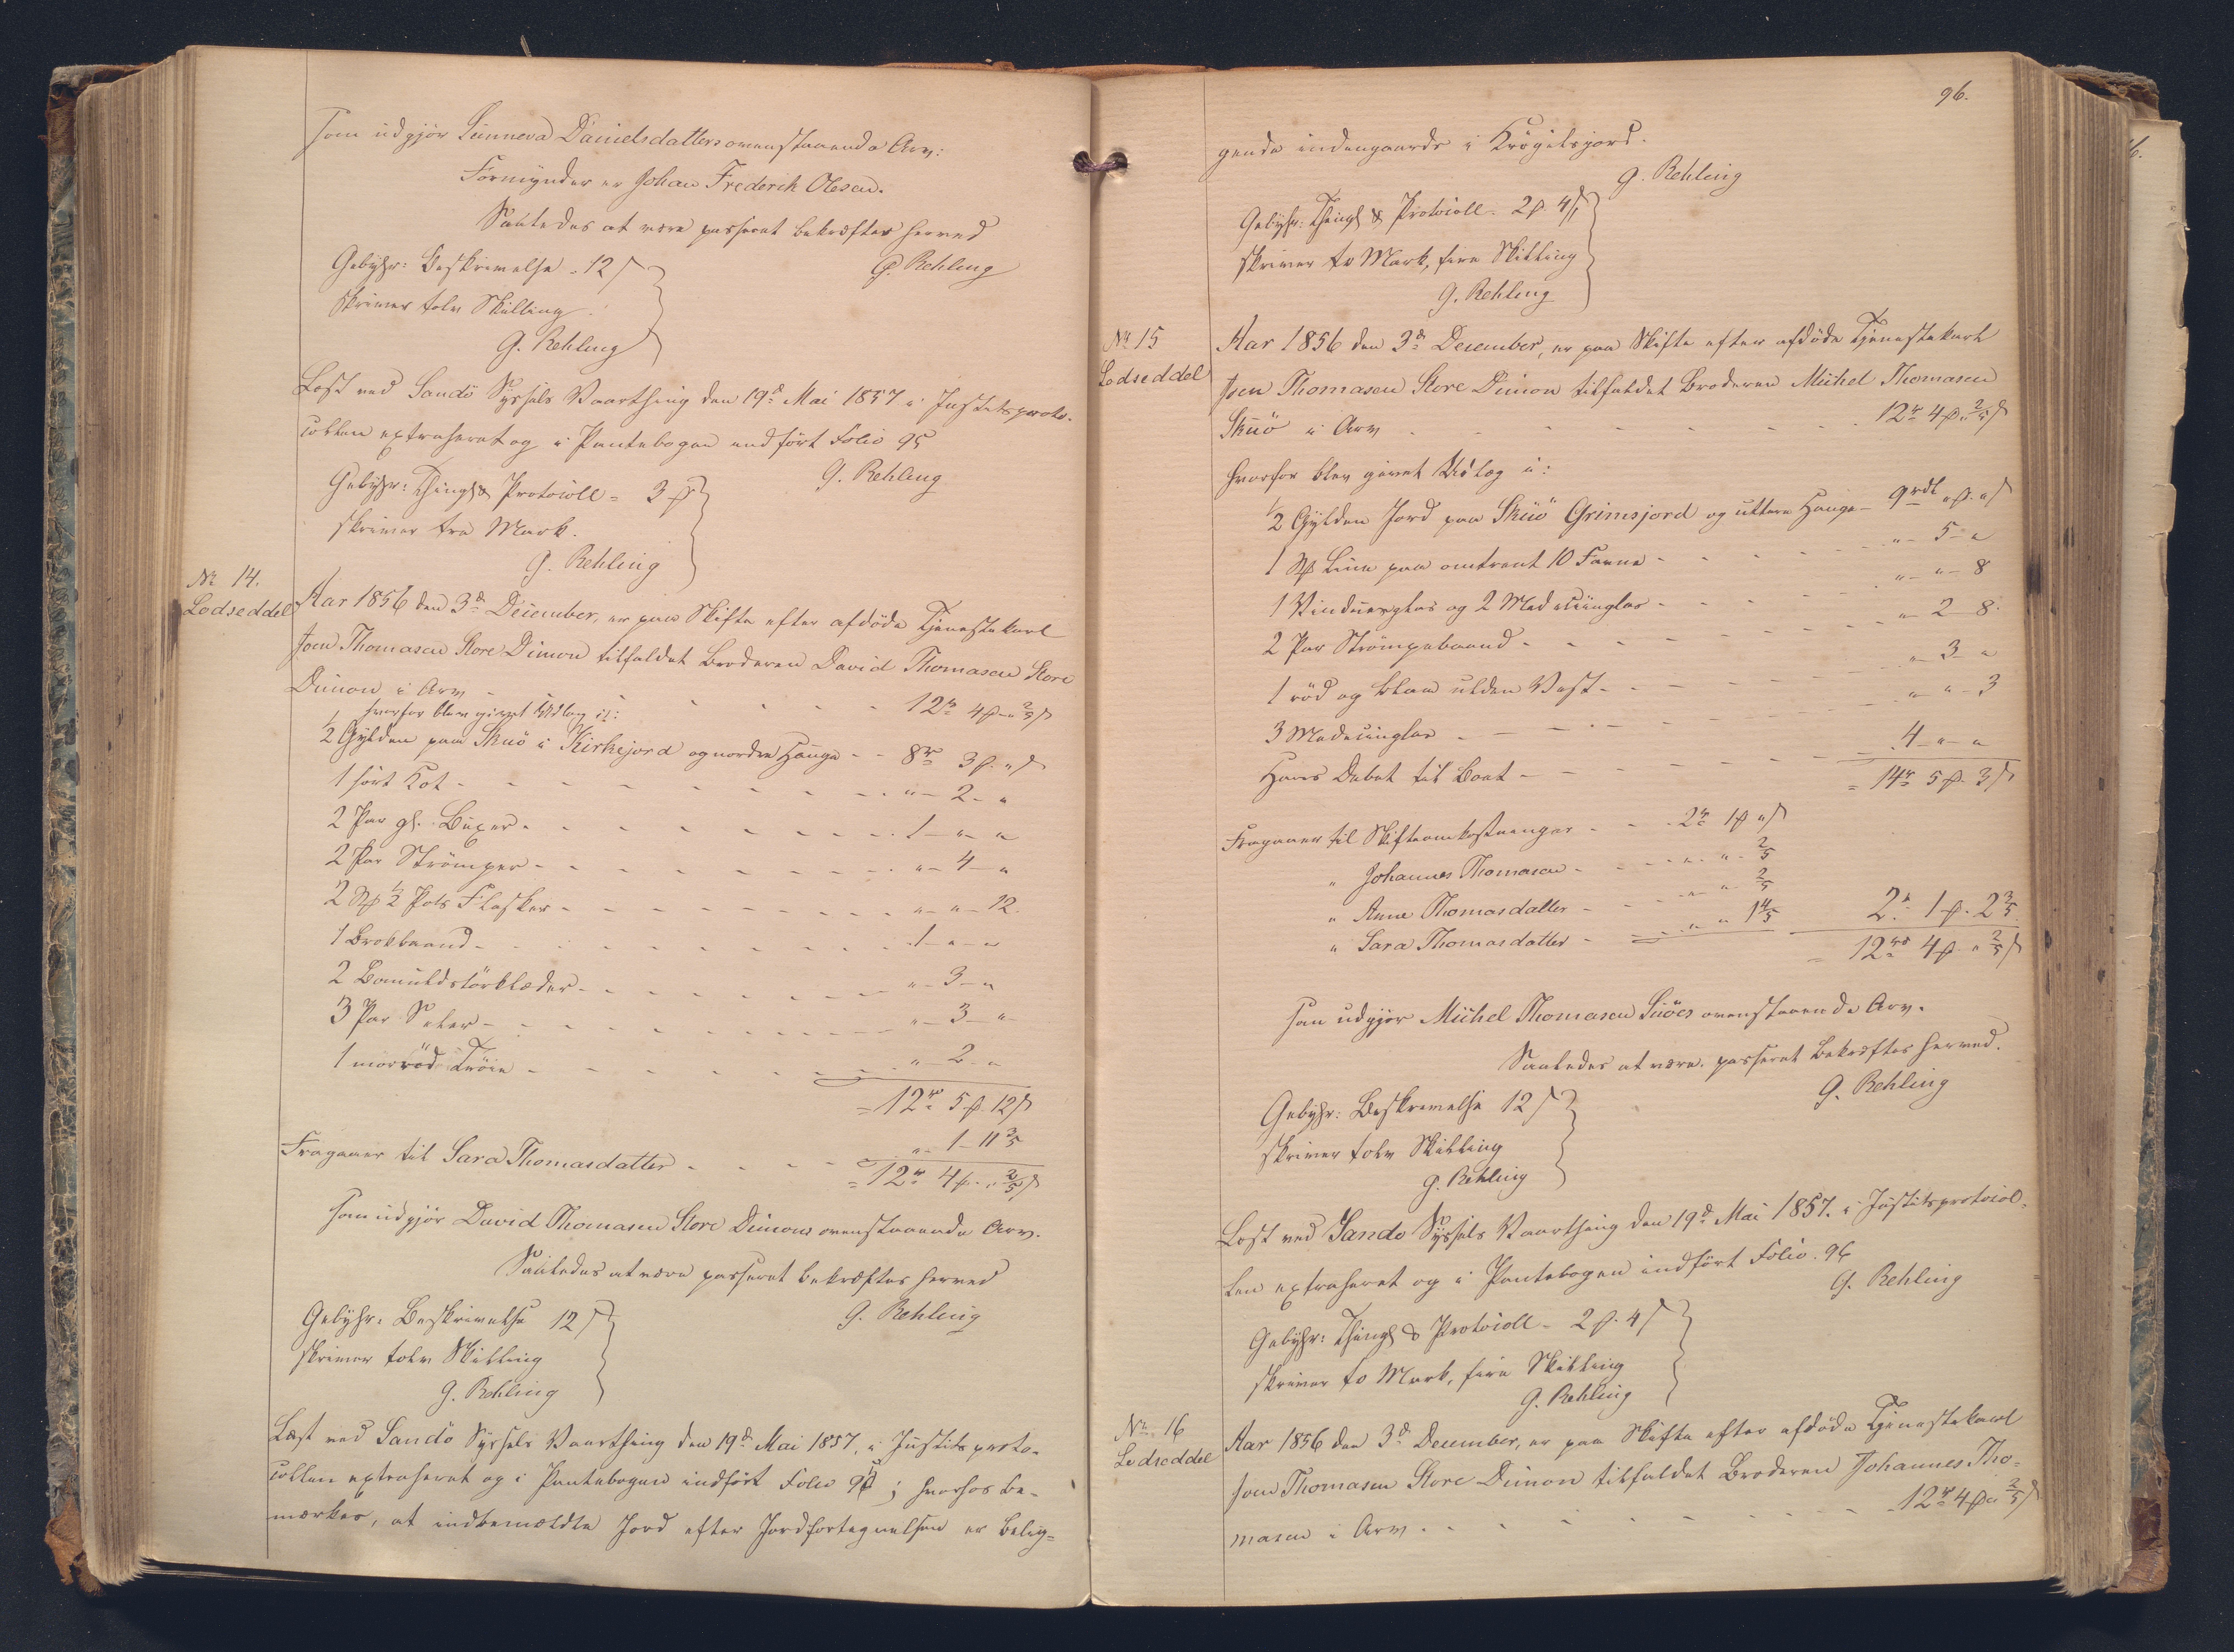 som udgjör Sunneva Danielsdatters ovenstaaende Arv:
Formynder er Johan Frederik Olesen.
Saaledes at være passeret bekræftes herved
G. Rehling
Gebyhr: Beskrivelse - 12 s
skriver tolv Skilling
G. Rehling
Læst ved Sandö Syssels Vaarthing den 19d Mai 1857 i Justitsproto-
collen extraheret og i Pantebogen indfört Folio 95
G. Rehling
Gebyhr: Thingl & Protocoll - 3 ß
skriver tre Mark.
G. Rehling
No 14.
Lodseddel
Aar 1856 den 3d December, er paa Skifte efter afdöde Tjenestekarl
Joen Thomasen Store Dimon tilfaldet Broderen David Thomasen Store
Dimon i Arv - - - - 12r 4ß " 2/5 s
hvorfor blev givet Udlæg i:
1/2 Gylden paa Skuö i Kirkejord og nordre Hauge - - 8r 3ß " s
1 sört Kot - - - " - 2 - "
2 Par gl. Buxer - - - 1 - " - "
2 Par Strömper - - - " - 4 - "
2 St 1/2 Pots Flasker - - - " - " - 12
1 Brokbaand - - - 1 - " - "
2 Bomuldstörklæder - - - " - 3 - "
3 Par Soler - - - " - 3 - "
1 morröd Tröie - - - " - 2 - "
= 12r 5ß 12 s
Fragaaer til Sara Thomasdatter - - - " - 1 - 11 3/5
= 12r 4ß " 2/5 s
som udgjör David Thomasen Store Dimons ovenstaaende Arv.
Saaledes at være passeret bekræftes herved
G. Rehling
Gebyhr: Beskrivelse 12 s
skriver tolv Skilling
G. Rehling
Læst ved Sandö Syssels Vaarthing den 19d Mai 1857, i Justitsproto-
collen extraheret og i Pantebogen indfört Folio 95; hvorhos be-
mærkes, at indbemældte Jord efter Jordfortegnelsen er belig-
96.
gende indengaards i Krögilsgjord.
G. Rehling
Gebyhr: Thingl & Protocoll - 2ß 4 s
skriver to Mark, fire Skilling
G. Rehling
No 15
Lodseddel
Aar 1856 den 3d December, er paa Skifte efter afdöde Tjenestekarl
Joen Thomasen Store Dimon tilfaldet Broderen Michel Thomasen
Skuö i Arv - - - 12r 4ß " 2/5 s
hvorfor blev givet Udlæg i:
1/2 Gylden Jord paa Skuö Grimsjord og uttere Hauge - 9rdl " ß " s
1 St Line paa omtrent 10 Favne - - - " - 5 - "
1 Vinduesglas og 2 Medicinglas - - - " - " - 8
2 Par Strömpebaand - - - " - 2 - 8
1 röd og blaa ulden Vest - - - " - 3 - "
3 Medicinglas - - - " - " - 3
Hans Debet til Boet - - - 4 - " - "
= 14r 5ß 3 s
Fragaaer til Skifteomkostninger - - 2r 1ß " s
" Johannes Thomasen - - - " - " - 2/5
" Anne Thomasdatter - - - " - " - 2/5
" Sara Thomasdatter - - - " - " 1 4/5 2r 1ß 2 3/5
= 12r 4ß " 2/5 s
som udgjör Michel Thomasen Suöes ovenstaaende Arv.
Saaledes at være passeret bekræftes herved.
G. Rehling
Gebyhr: Beskrivelse 12 s
skriver tolv Skilling
G. Rehling
Læst ved Sandö Syssels Vaarthing den 19d Mai 1857. i Justitsprotocol-
len extraheret og i Pantebogen indfört Folio 96
G. Rehling
Gebyhr: Thingl & Protocoll - 2ß 4 s
skriver to Mark, fire Skilling
G. Rehling
No 16
Lodseddel
Aar 1856 den 3d December, er paa Skifte efter afdöde Tjenestekarl
Joen Thomasen Store Dimon tilfaldet Broderen Johannes Tho-
masen i Arv - - - 12r 4ß " 2/5 s